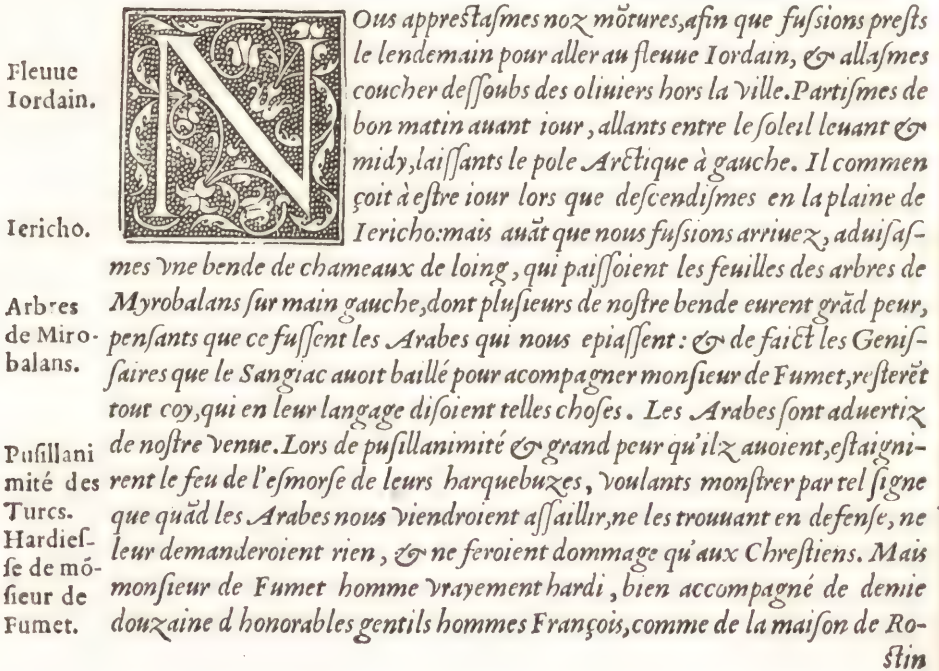 NOus apprestasmes noz mõtures, afin que fussions prests
le lendemain pour aller au fleuue Iordain, & allasmes
Fleuue
Iordain.
coucher dessoubs des oliuiers hors la ville. Partismes de
bon matin auant iour, allants entre le soleil leuant &
midy, laissants le pole Arctique à gauche. Il commen
çoit à estre iour lors que descendismes en la plaine de
Iericho.
Iericho: mais auãt que nous fussions arriuez, aduisas-
mes vne bende de chameaux de loing, qui paissoient les feuilles des arbres de
Arbres
de Miro-
balans.
Myrobalans sur main gauche, dont plusieurs de nostre bende eurent grãd peur,
pensants que ce fussent les Arabes qui nous epiassent: & de faict les Genis-
saires que le Sangiac auoit baillé pour acompagner monsieur de Fumet, resterẽt
tout coy, qui en leur langage disoient telles choses. Les Arabes sont aduertiz
Pusillani
mité des
Turcs.
de nostre venue. Lors de pusillanimité & grand peur qu'ilz auoient, estaigni-
rent le feu de l'esmorse de leurs harquebuzes, voulants monstrer par tel signe
que quãd les Arabes nous viendroient assaillir, ne les trouuant en defense, ne
Hardies-
se de mõ-
sieur de
Fumet.
leur demanderoient rien, & ne feroient dommage qu'aux Chrestiens. Mais
monsieur de Fumet homme vrayement hardi, bien accompagné de demie
douzaine d honorables gentils hommes François, comme de la maison de Ro-
stin